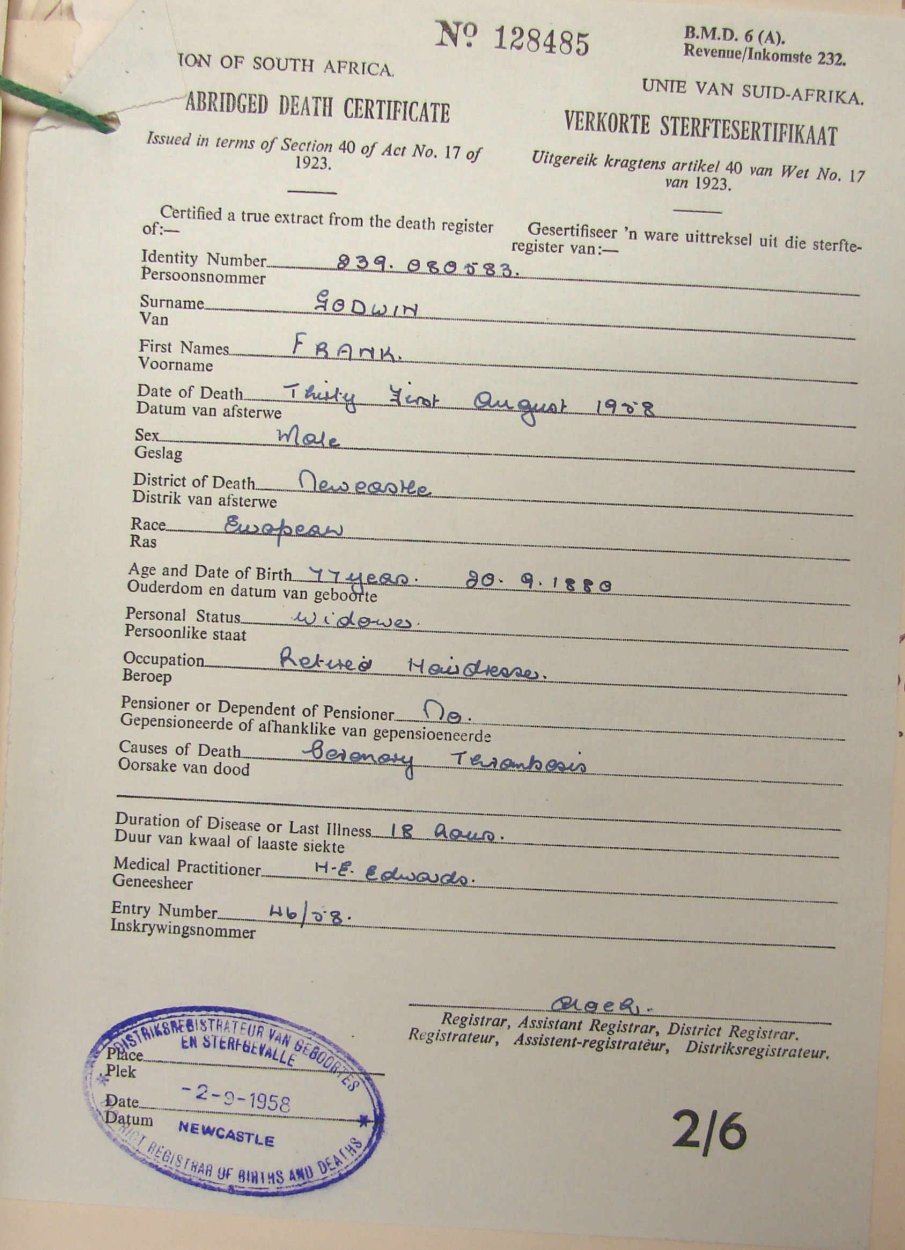 Nº 128485
B.M.D. 6 (A).
Revenue/Inkomste 232.
ION OF SOUTH AFRICA.
UNIE VAN SUID-AFRIKA.
ABRIDGED DEATH CERTIFICATE
VERKORTE STERFTESERTIFIKAAT
Issued in terms of Section 40 of Act No. 17 of
1923.
Uitgereik kragtens artikel 40 van Wet No. 17
van 1923.
Certified a true extract from the death register
of:—
Gesertifiseer 'n ware uittreksel uit die sterfte-
register van:—
Identity Number 239. 080583.
Persoonsnommer
Surname GODWIN
Van
First Names FRANK.
Voorname
Date of Death Thirty First August 1958
Datum van afsterwe
Sex Male
Geslag
District of Death Newcastle
Distrik van afsterwe
Race European
Ras
Age and Date of Birth 77 years. 20. 9. 1880
Ouderdom en datum van geboorte
Personal Status Widower.
Persoonlike staat
Occupation Retired Hairdresser.
Beroep
Pensioner or Dependent of Pensioner No.
Gepensioneerde of afhanklike van gepensioeneerde
Causes of Death Coronary Thrombosis
Oorsake van dood
Duration of Disease or Last Illness 18 hours.
Duur van kwaal of laaste siekte
Medical Practitioner H.E. Edwards.
Geneesheer
Entry Number 46/58.
Inskrywingsnommer
Registrar, Assistant Registrar, District Registrar.
Registrateur, Assistent-registrateur, Distriksregistrateur.
DISTRIKSREGISTRATEUR VAN GEBOORTES
EN STERFGEVALLE
Place
Plek
Date -2-9-1958
Datum NEWCASTLE
DISTRICT REGISTRAR OF BIRTHS AND DEATHS
2/6